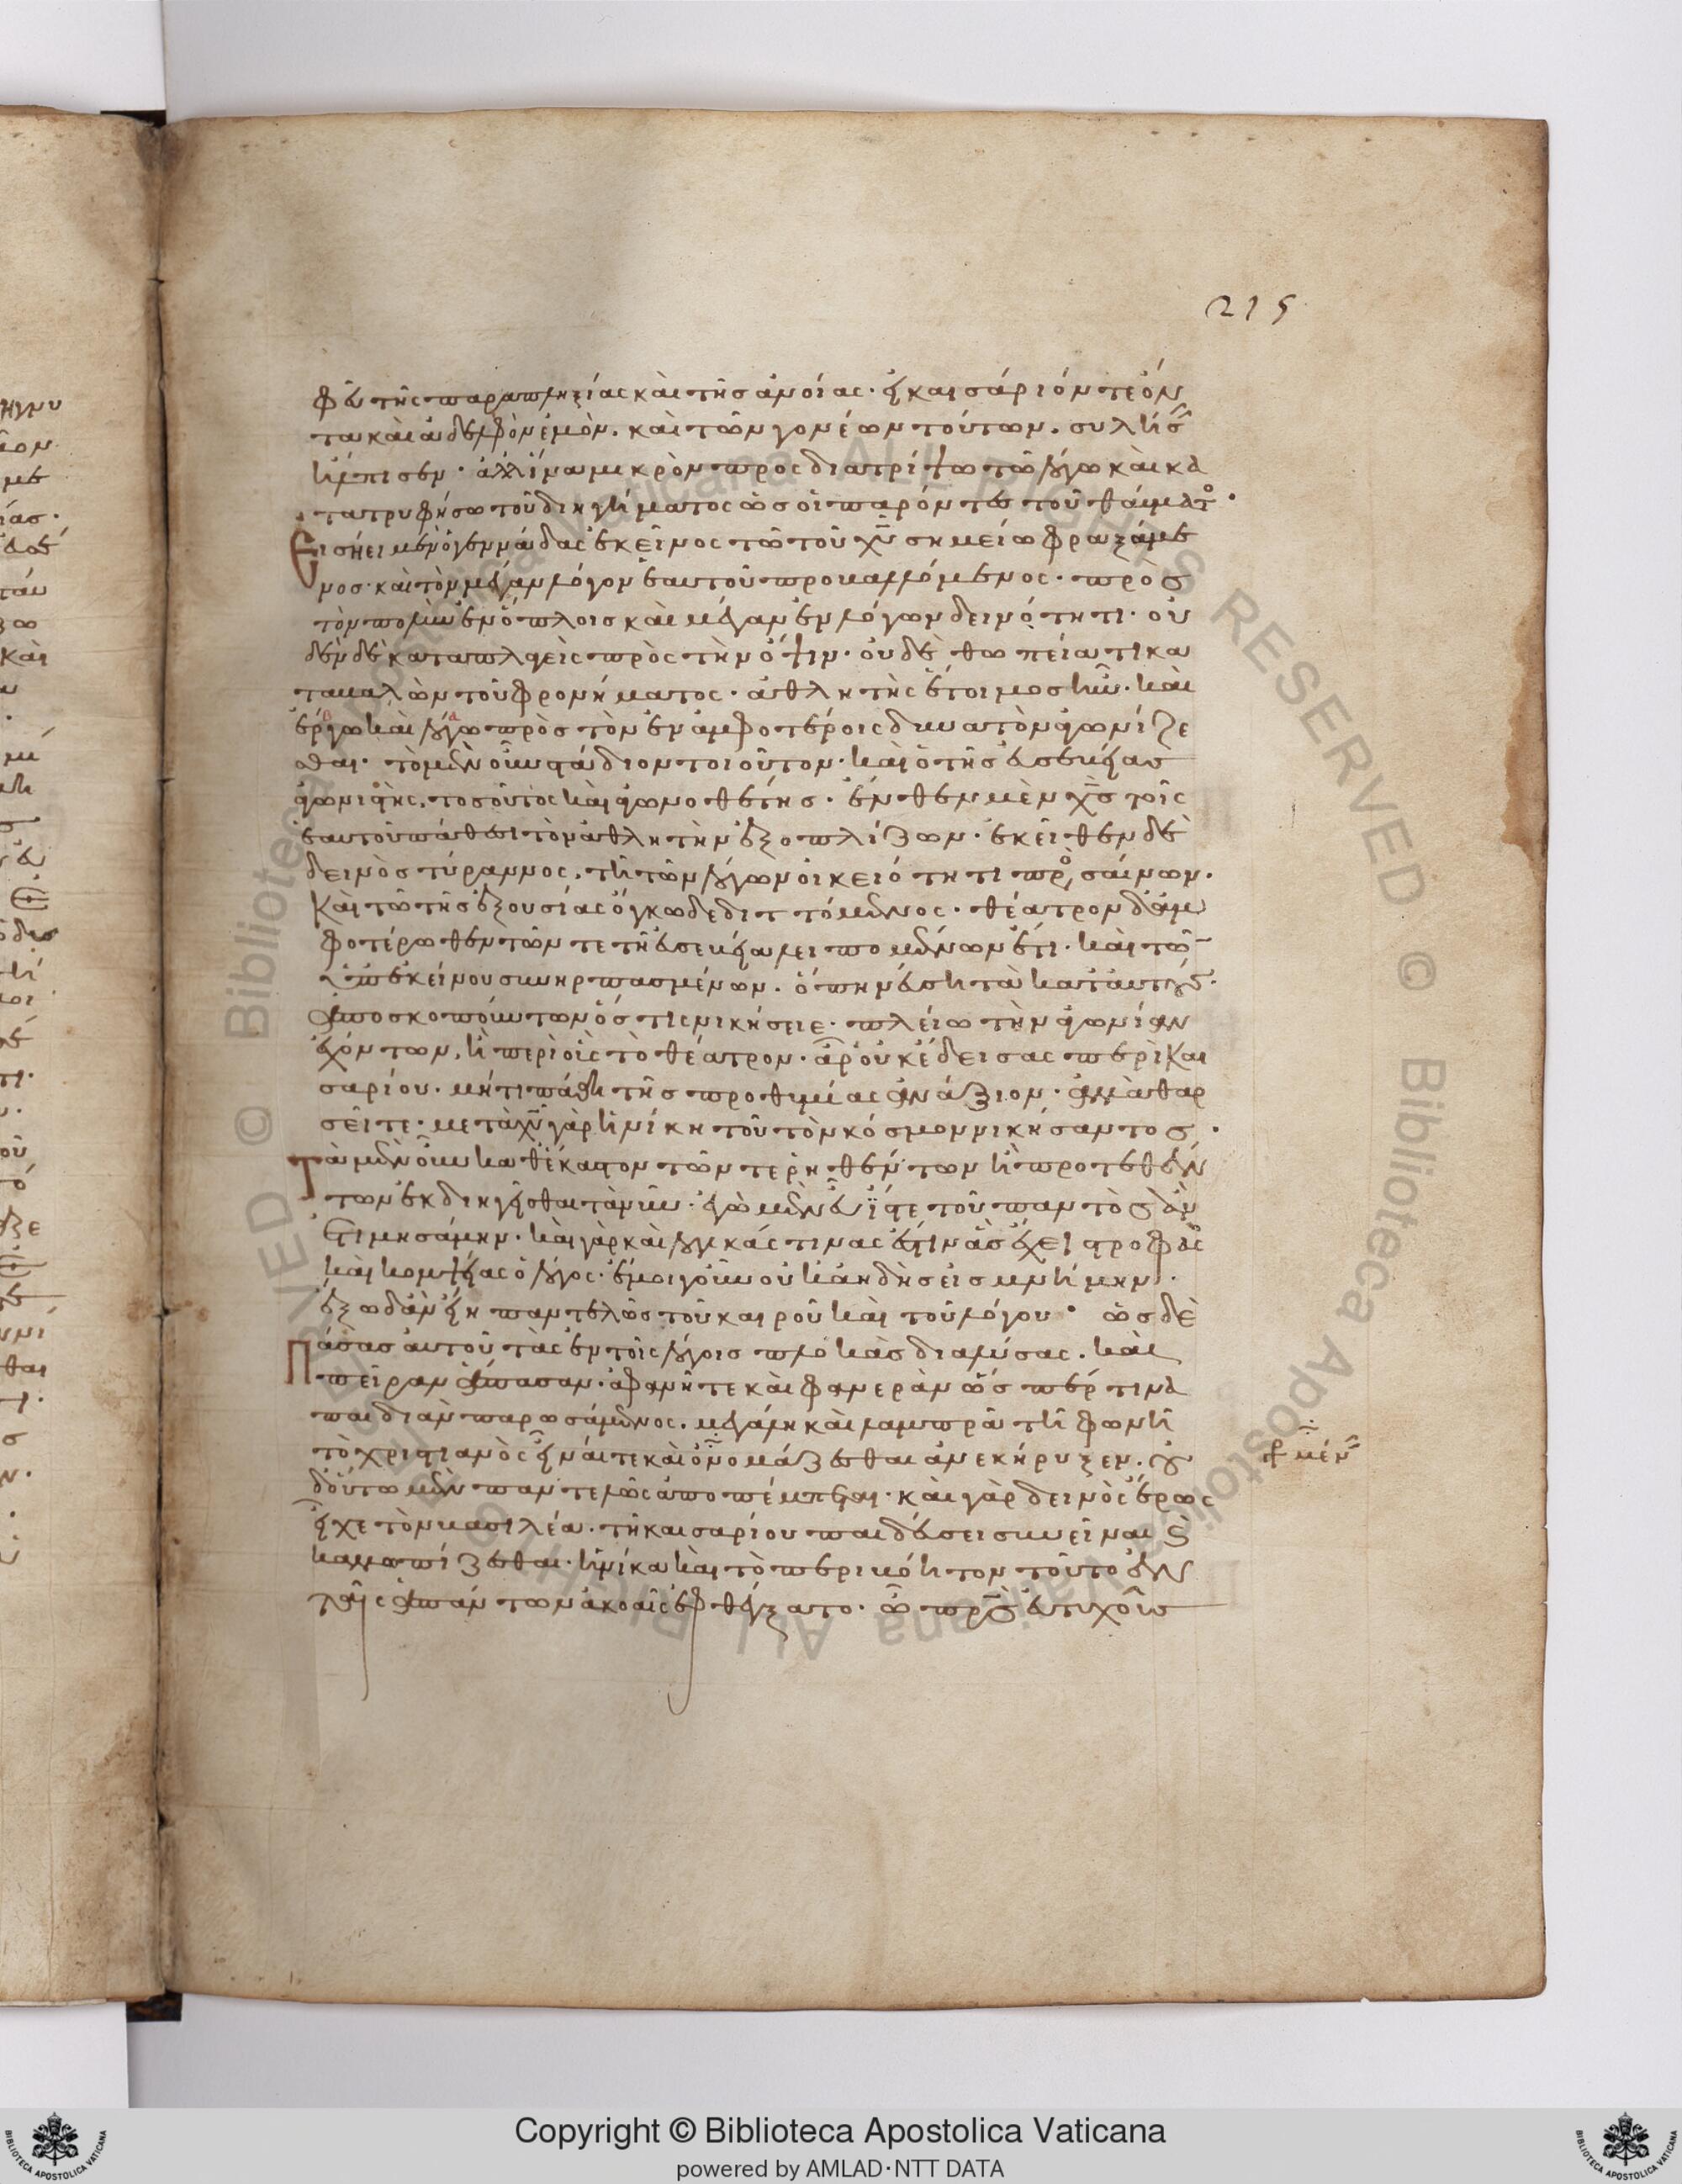 215
φεῦ τῆς παραπληξίας καὶ τῆς ἀνοίας· εἰ καισάριόν τε ὄν
τα καὶ ἀδελφὸν ἐμὸν. καὶ τῶν γονέων τούτων. συλήσειν
ἤλπισεν· ἀλλ' ἵνα μικρὸν προσδιατρίψω τῶ λόγω καὶ κα
τατρυφήσω τοῦ διηγήματος ὡς οἱ παρόντες τοῦ θαύματος·
Εἰσήει μὲν ὁ γεννάδας ἐκεῖνος τῶ τοῦ χυ σημείω φραξάμε
νος· καὶ τὸν μέγαν λόγον ἑαυτοῦ προβαλλόμενος· πρὸς
τὸν πολὺν ἐν ὅπλοις καὶ μέγαν ἐν λόγων δεινότητι· οὐ
δὲν δὲ καταπλαγεὶς πρὸς τὴν ὄψιν· οὐδὲ θωπεία τι κα
ταβαλὼν τοῦ φρονήματος· ἀθλητὴς ἕτοιμος ἦν· καὶ
ἔργω καὶ λόγω πρὸς τὸν ἐν ἀμφοτέροις δυνατὸν ἀγωνίζε
σθαι· τὸ μὲν οὖν στάδιον τοιοῦτον· καὶ ὁ τῆς εὐσεβείας
ἀγωνιστὴς. τοσοῦτος καὶ ἀγωνοθέτης· ἔνθεν μὲν χς τοῖς
ἑαυτοῦ πάθεσι τὸν ἀθλητὴν ἐξοπλίζων· ἐκεῖθεν δὲ
δεινὸς τύραννος. τῆ τῶν λόγων οἰκειότητι προσσαίνων.
καὶ τῶ τῆς ἐξουσίας ὄγκω δεδιττόμενος· θέατρον δ' ἀμ
φοτέρωθεν τῶν τε τῆ εὐσεβεία λειπομένων ἔτι· καὶ τῶν
ὑπ' ἐκείνου συνηρπασμένων. ὅπη νεύση τὰ κατ' αὐτοὺς·
ἀποσκοπούντων ὅστις νικήσειε· πλείω τὴν ἀγωνίαν
ἐχόντων, ἢ περὶ οἷς τὸ θέατρον· ἆρ' οὐκ ἔδεισας περὶ και
σαρίου· μή τι πάθη τῆς προθυμίας ἀνάξιον· ἀλλὰ θαρ
σεῖτε· μετὰ χυ γὰρ ἡ νίκη τοῦ τὸν κόσμον νικήσαντος·
Τὰ μὲν οὖν καθέκαστον τῶν τε ῥηθέντων ἢ προτεθέν
των ἐκδιηγεῖσθαι τανῦν· ἐγὼ μὲν εὖ ἴστε τοῦ παντὸς ἂν
ἐτιμησάμην· καὶ γὰρ καὶ λογικάς τινας ἔστιν ἃς ἔχει στροφὰς
καὶ κομψείας ὁ λόγος· ἐμοὶ γοῦν οὐκ ἀηδὴς εἰς μνήμην·
ἔξω δ' ἂν εἴη παντελῶς τοῦ καιροῦ καὶ τοῦ λόγου· ὡς δὲ
Πάσας αὐτοῦ τὰς ἐν τοῖς λόγοις πλοκὰς διαλύσας. καὶ
πεῖραν ἅπασαν· ἀφανῆ τε καὶ φανερὰν ὥσπερ τινὰ
παιδιὰν παρωσάμενος. μεγάλη καὶ λαμπρᾶ τῆ φωνῆ
τὸ χριστιανὸς εἶναί τε καὶ ὀνομάζεσθαι ἀνεκήρυξεν. οὐ
δ' οὕτω μὲν παντελῶς ἀποπέμπεται· καὶ γὰρ δεινὸς ἔρως
εἶχε τὸν βασιλέα. τῆ καισαρίου παιδεύσει συνεῖναι καὶ
καλλωπίζεσθαι· ἡνίκα καὶ τὸ περιβόητον τοῦτο ἐν
ταῖς ἁπάντων ἀκοαῖς ἐφθέγξατο· ὢ πρς εὐτυχοῦς